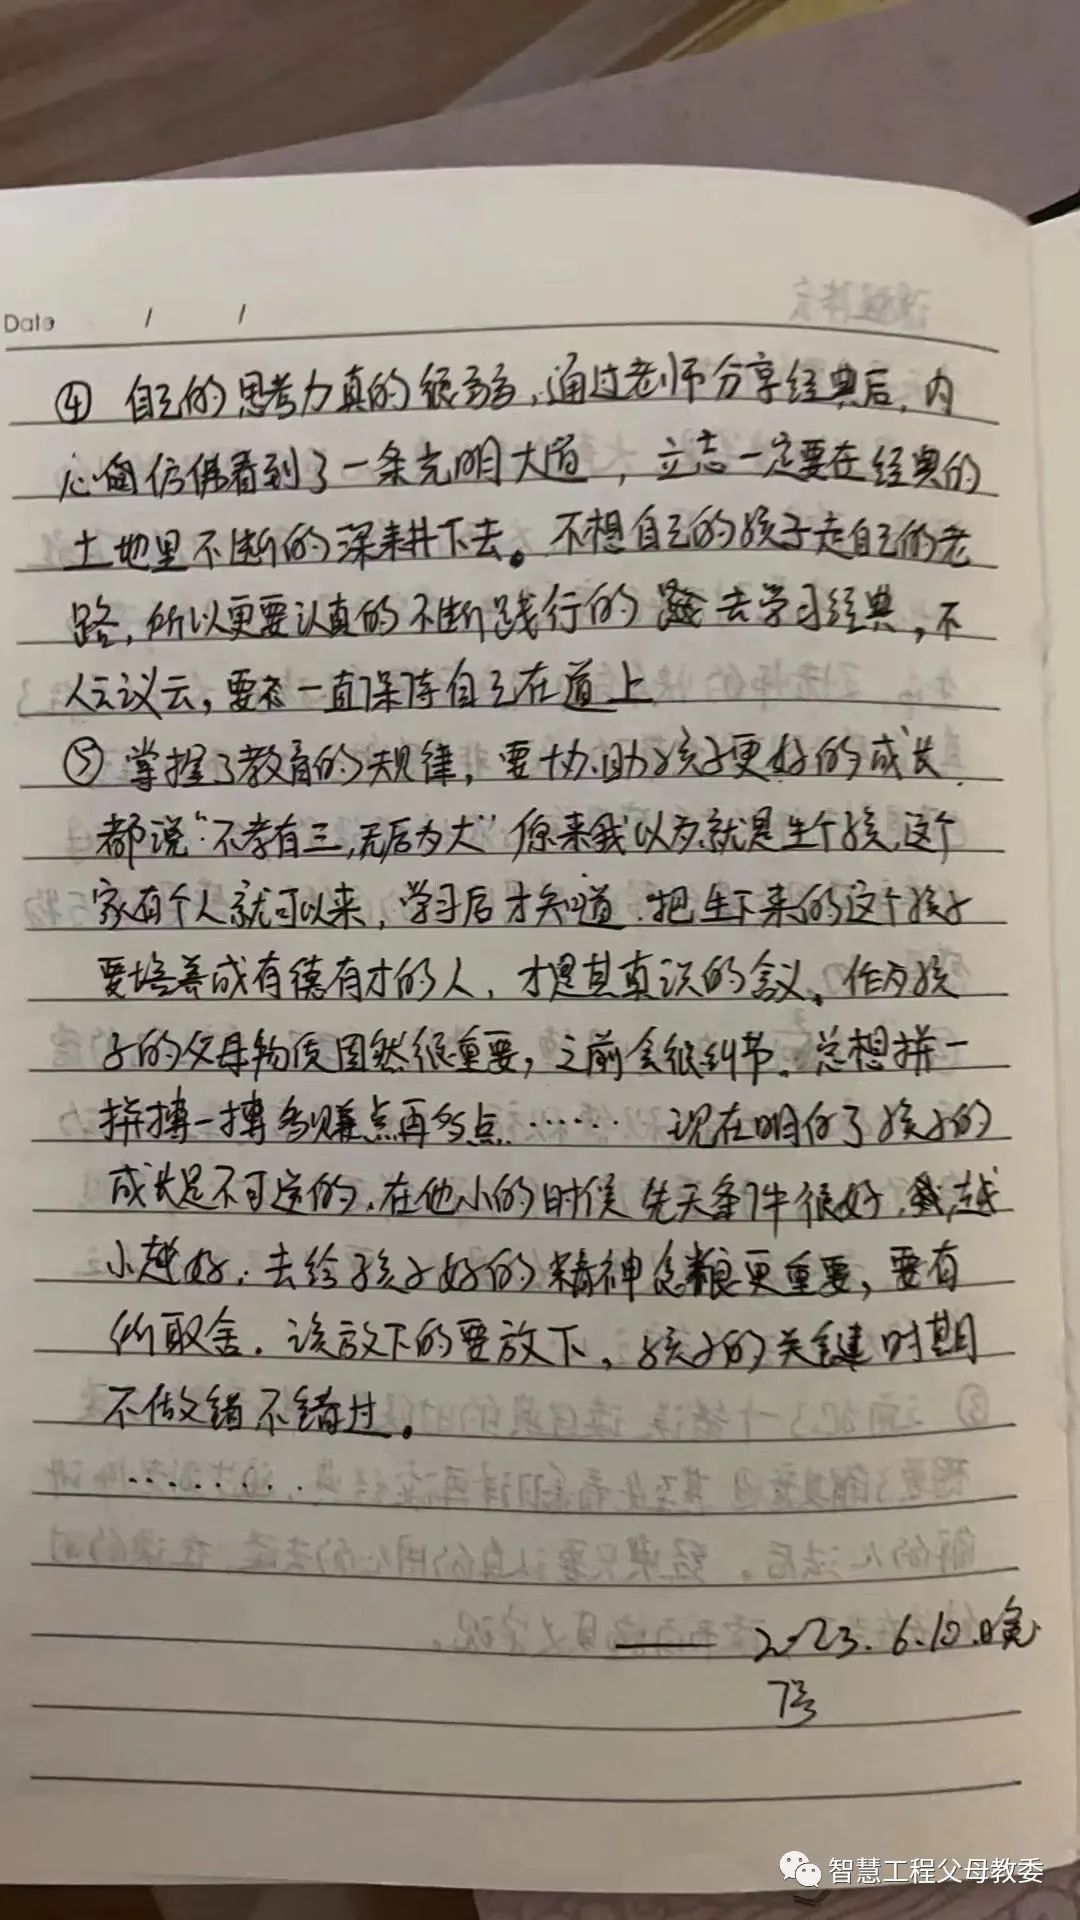 Date / /
④ 自己的思考力真的很弱，通过老师分享经典后，内
心仿佛看到了一条光明大道，立志一定要在经典的
土地里不断的深耕下去。不想自己的孩子走自己的老
路，所以更要认真的不断践行的去学习经典，不
人云议云，要一直保持自己在道上
⑤ 掌握了教育的规律，要协助孩子更好的成长
都说“不孝有三，无后为大”原来我以为就是生个孩，这个
家有个人就可以来，学习后才知道，把生下来的这个孩子
要培养成有德有才的人，才是其真谛的含义。作为孩
子的父母物质固然很重要，之前会很纠节。总想拼一
拼搏一搏多赚点再多点……现在明白了孩子的
成长是不可逆的，在他小的时候先天条件很好，越
小越好，去给孩子好的精神食粮更重要，要有
所取舍。该放下的要放下，孩子的关键时期
不做错不错过。
………
——2023.6.10.晚
7号
智慧工程父母教委